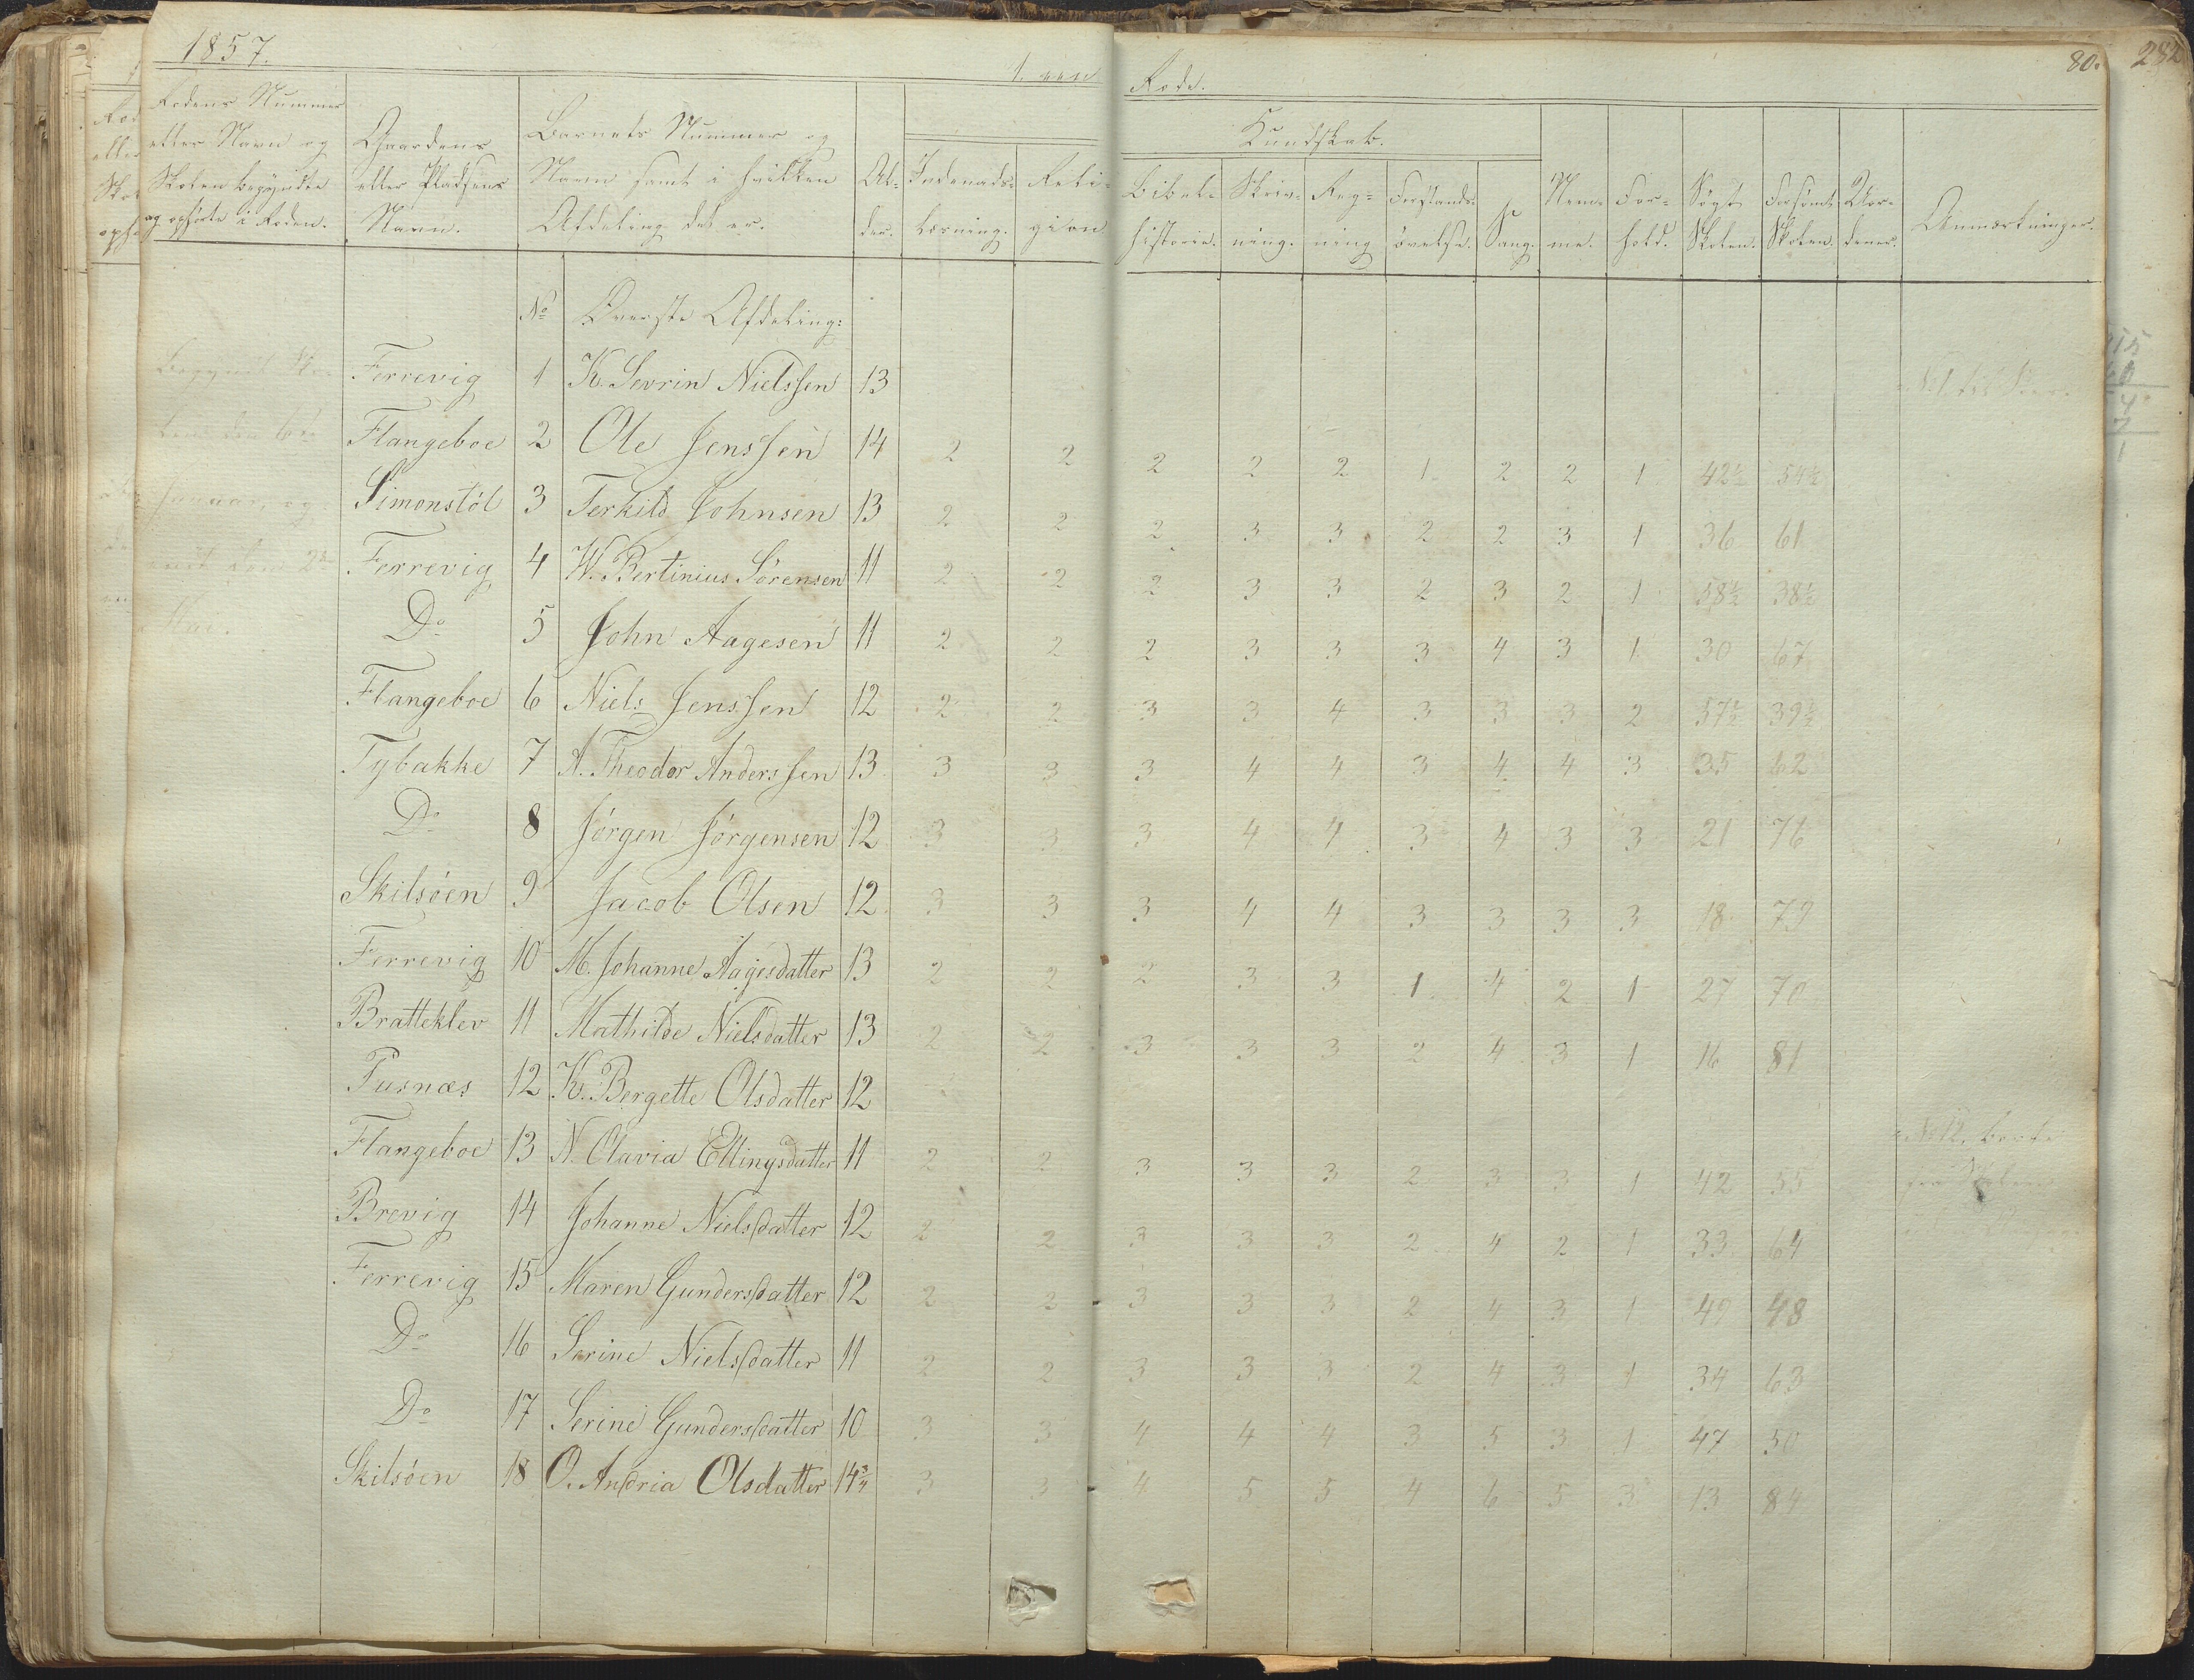 1857.
1.
Rode.
80.
282
Rodens Nummer
eller Navn og
Skolen begyndte
og ophørte i Roden.
Gaardens
eller Pladsens
Navn.
Barnets Nummer og
Navn samt i hvilken
Afdeling det er.
Al-
der.
Kundskab.
Indenads-
læsning.
Reli-
gion
Bibel-
historie.
Skriv-
ning.
Reg-
ning
Forstands-
øvelse.
Sang.
Nem-
me.
For-
hold.
Søgt
Skolen.
Forsømt
Skolen.
Anmærkninger.
No Øverste Afdeling:
Ferrevig 1 K. Sevrin Nielssen 13
Flangeboe 2 Ole Jenssen 14 2 2 2 2 2 1 2 2 1 42½ 54½
Simonstöl 3 Terkild Johnsen 13 2 2 2 3 3 2 2 3 1 36 61
Ferrevig 4 W. Bertinius Sörensen 11 2 2 2 3 3 2 3 2 1 58½ 38½
Do 5 John Aagesen 11 2 2 2 3 3 3 4 3 1 30 67
Flangeboe 6 Niels Jenssen 12 2 2 3 3 4 3 3 3 2 57½ 39½
Tybakke 7 A. Theodor Anderssen 13 3 3 3 4 4 3 4 4 3 35 62
Do 8 Jörgen Jörgensen 12 3 3 3 4 4 3 4 3 3 21 76
Skilsöen 9 Jacob Olsen 12 3 3 3 4 4 3 3 3 3 18 79
Ferrevig 10 M. Johanne Aagesdatter 13 2 2 2 3 3 1 4 2 1 27 70
Bratteklev 11 Mathilde Nielsdatter 13 2 2 3 3 3 2 4 3 1 16 81
Pusnæs 12 K. Bergette Olsdatter 12
Flangeboe 13 N. Olavia Ellingsdatter 11 2 2 3 3 3 2 3 3 1 42 55
Brevig 14 Johanne Nielsdatter 12 2 2 3 3 3 2 4 2 1 33 64
Ferrevig 15 Maren Gundersdatter 12 2 2 3 3 3 2 4 3 1 49 48
Do 16 Serine Nielsdatter 11 2 2 3 3 3 2 4 3 1 34 63
Do 17 Serine Gundersdatter 10 3 3 4 4 4 3 5 3 1 47 50
Skilsöen 18 O. Andria Olsdatter 14¾ 3 3 4 5 5 4 6 5 3 13 84
No 12.